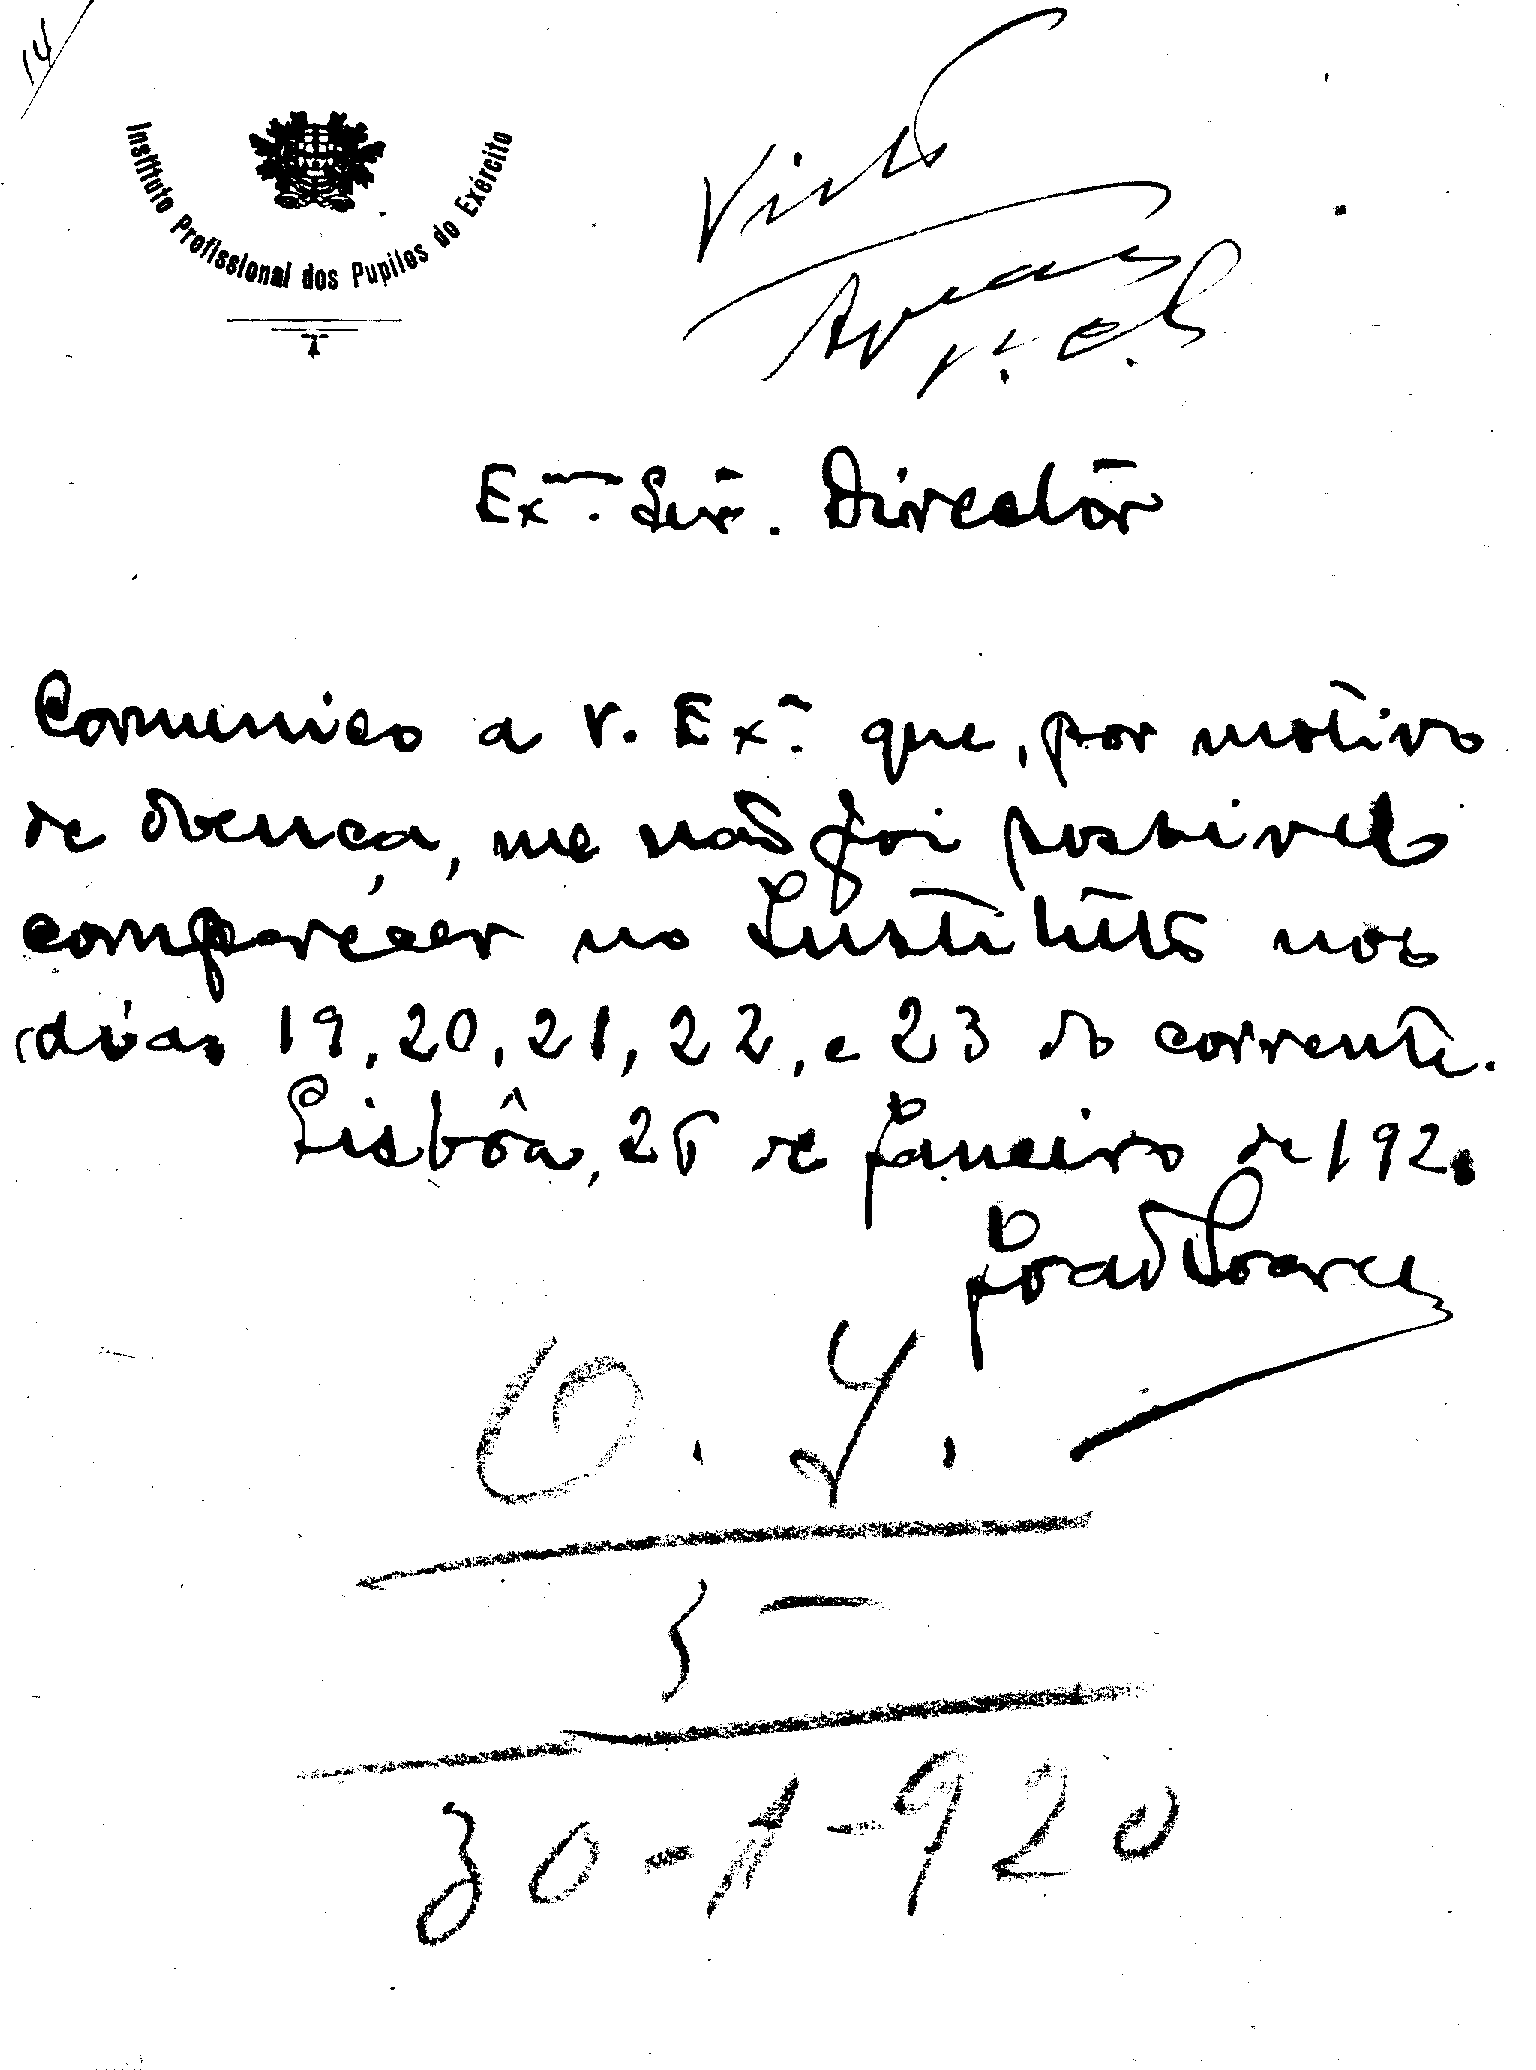 14
Instituto Profissional dos Pupilos do Exército
Visto
Exmo. Snr. Directôr
Comunico a V. Exa. que, por motivo
de doença, me não foi possivel
comparecer no Instituto nos
dias 19, 20, 21, 22, e 23 do corrente.
Lisbôa, 26 de Janeiro de 192
João Soares
O. I.
5 -
30-1-920